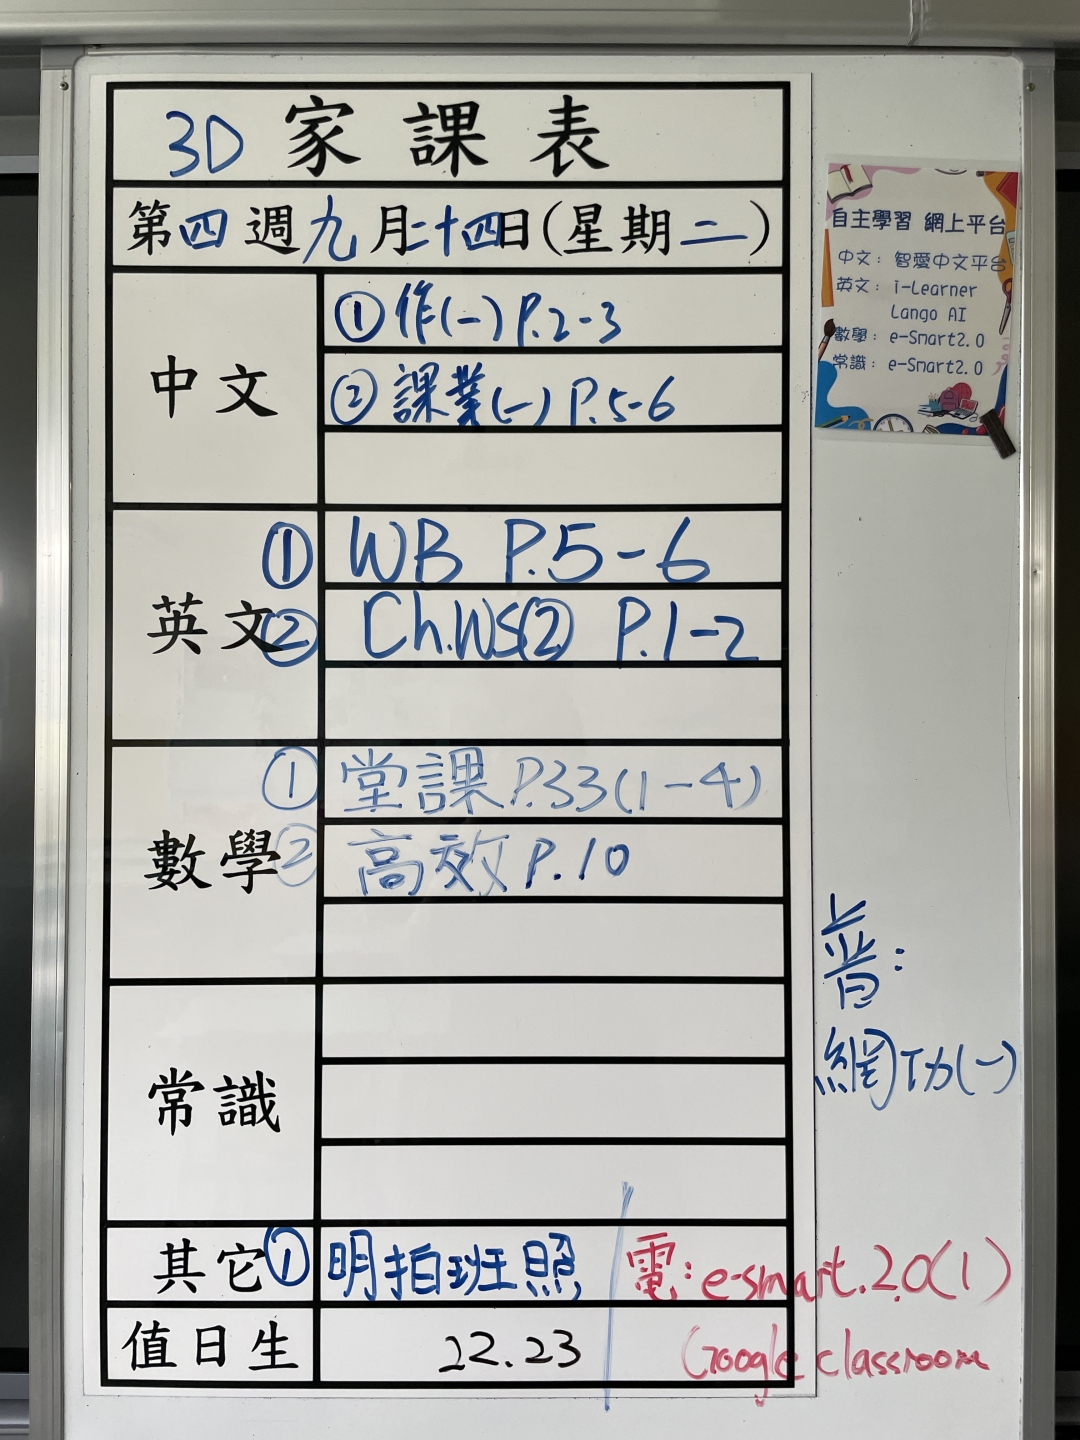 3D 家課表
第四週九月二十四日(星期二)
中文
① 作(一) P.2-3
② 課業(一) P.5-6
英文
① WB P.5-6
② Ch.WS(2) P.1-2
數學
① 堂課 P.33(1-4)
② 高效 P.10
常識
其它
① 明拍班照
電: e-smart.2.0(1)
Google classroom
值日生
22.23
自主學習 網上平台
中文: 智愛中文平台
英文: i-Learner
Lango AI
數學: e-Smart2.0
常識: e-Smart2.0
普:
網功(一)